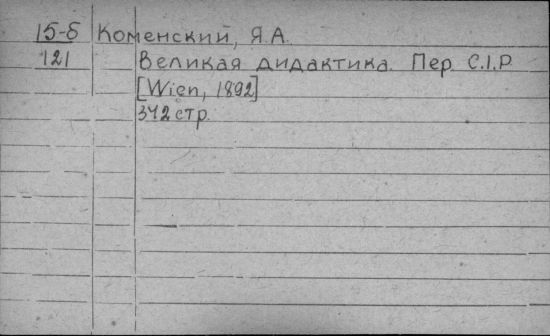 15-б Коменский, Я.А.
121 Великая дидактика. Пер. С.I.Р.
[Wien, 1892]
342 стр.